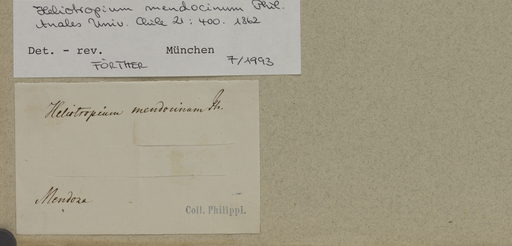 Heliotropium mendocinum Phil.
Anales Univ. Chile 21 : 400. 1862
Det. - rev. München
FÖRTHER 7/1993
Heliotropium mendocinum Ph.
Mendoza
Coll. Philippi.